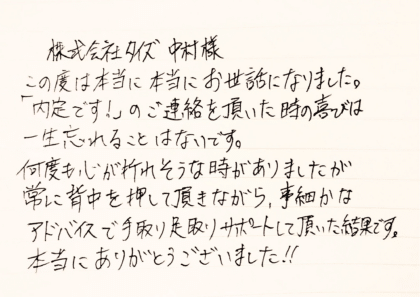 株式会社タイズ 中村様
この度は本当に本当にお世話になりました。
「内定です!」のご連絡を頂いた時の喜びは
一生忘れることはないです。
何度も心が折れそうな時がありましたが
常に背中を押して頂きながら、事細かな
アドバイスで手取り足取りサポートして頂いた結果です。
本当にありがとうございました!!